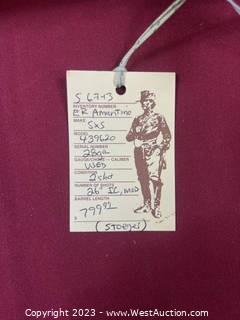 S 6773
INVENTORY NUMBER
ER Amantino
MAKE
SxS
MODEL
439620
SERIAL NUMBER
28ga
GAUGE/CHOKE — CALIBER
WED
CONDITION
2 shot
NUMBER OF SHOTS
26" IC, MOD
BARREL LENGTH
$
(Stoeger)
© 2023 - www.WestAuction.com